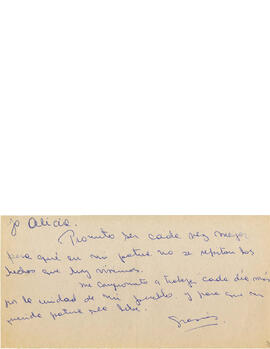 yo Alicia.
Prometo ser cada vez mejor
para que en mi patria no se repitan los
hechos que hoy vivimos.
me comprometo a trabajar cada día más
por la unidad de mi pueblo y para que mi
patria sea libre.